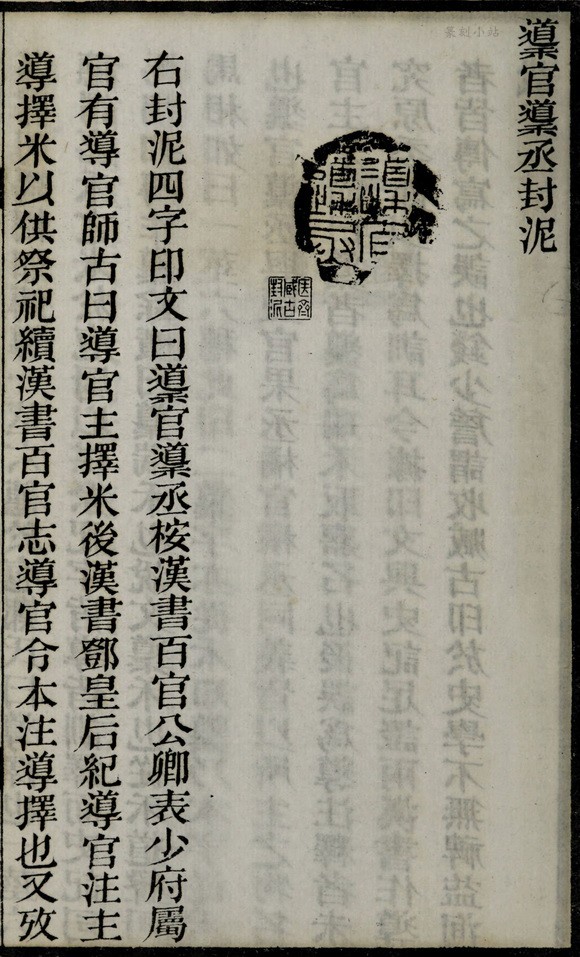 篆刻小站
䆃官䆃丞封泥
䆃官
䆃丞
臧古
封泥
右封泥四字印文曰䆃官䆃丞桉漢書百官公卿表少府屬
官有導官師古曰導官主擇米後漢書鄧皇后紀導官注主
導擇米以供祭祀續漢書百官志導官令本注導擇也又攷